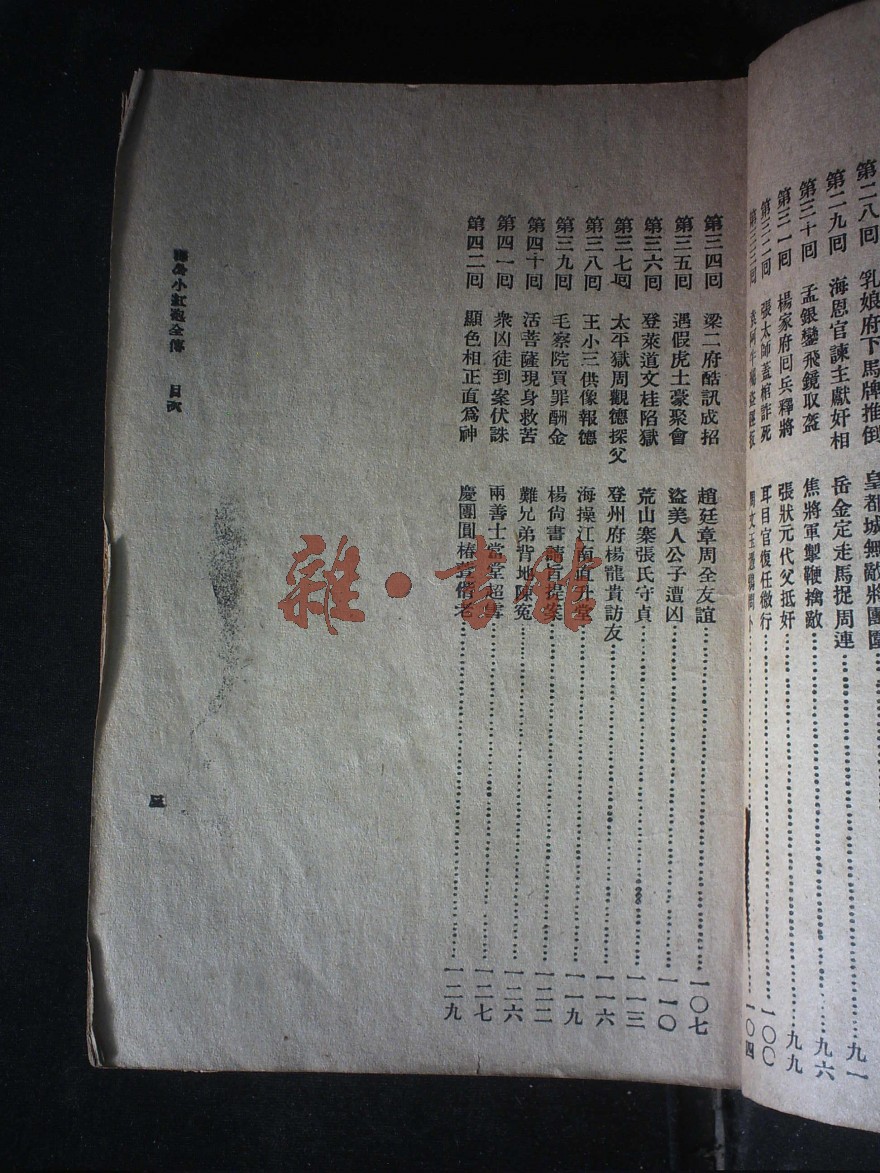 第二八回 乳娘府下馬牌推倒 皇都城無敵將團圍 九一
第二九回 海恩官諫主獻奸相 岳金定走馬捉周連 九六
第三十回 孟銀鑾飛鏡取盔 焦將軍掣鞭擒敵 九九
第三一回 楊家府回兵釋將 張狀元代父抵奸 一〇〇
第三二回 張太師蓋棺詐死 耳目官復任微行 一〇四
第三三回
第三四回 梁二府酷訊成招 趙廷章周全友誼 一〇七
第三五回 遇假虎土豪聚會 盜美人公子遭凶 一一〇
第三六回 登萊道文桂陷獄 荒山寨張氏守貞 一一三
第三七回 太平獄周觀德探父 登州府楊龍貴訪友 一一六
第三八回 王小三供像報德 海操江南直升堂 一一九
第三九回 毛察院買罪酬金 楊尙書請旨提案 一二二
第四十回 活菩薩現身救苦 難兄弟背地陳冤 一二六
第四一回 衆凶徒到案伏誅 兩善士當堂超 一二七
第四二回 顯色相正直爲神 慶團圓椿萱偕老 一二九
海公小紅袍全傳 目次
三
雜·書館